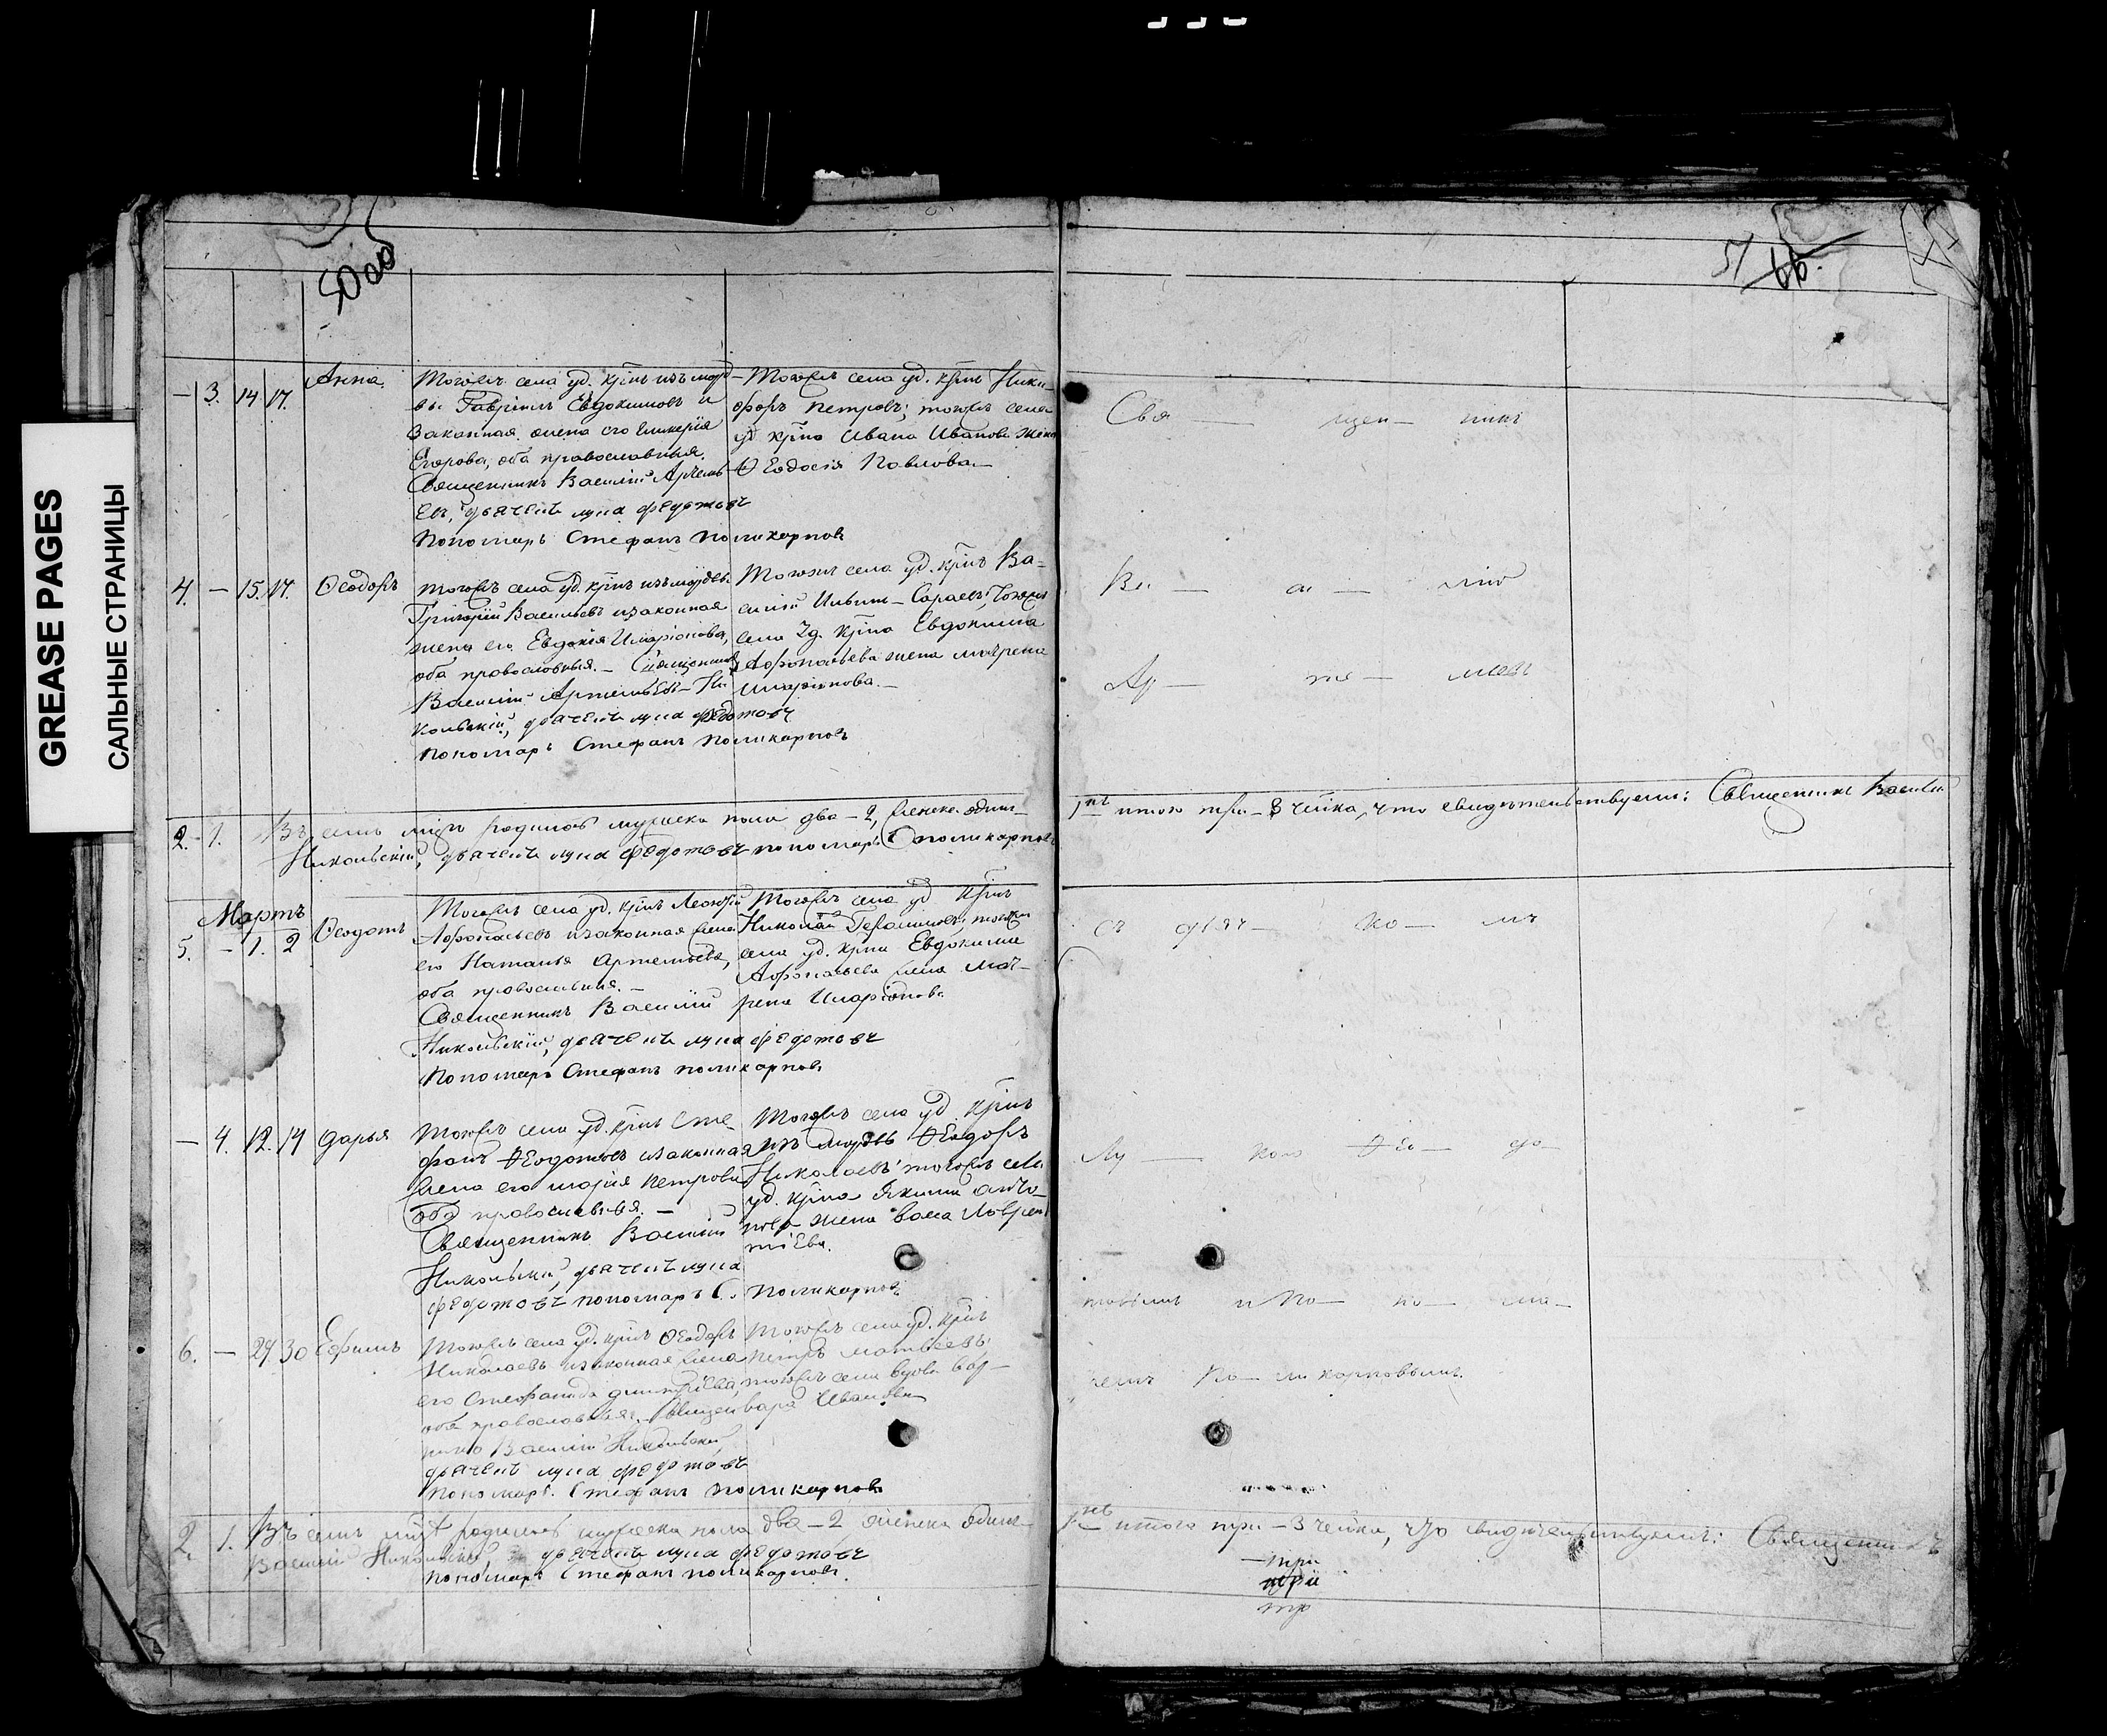 GREASE PAGES
САЛЬНЫЕ СТРАНИЦЫ
50об
51 66.
— 3. 14 17.
Анна
Тогожъ села уд. крнъ изъ морд-
вы Гавріилъ Евдокимовъ и
законная жена его Гликерія
Егорова, оба православныя.
Священникъ Василій Артемь
евъ, дьячекъ лука федотовъ
Пономарь Стефанъ поликарповъ
Тогожъ села уд. крнъ Ники-
форъ Петровъ; тогожъ села
уд крна Ивана Иванова жена
Ѳеодосія Павлова.—
Свя — щен — никъ
4. — 15. 17.
Ѳеодоръ
Тогожъ села уд. крнъ изъ мордвы
Григорій Васильевъ и законная
жена его Евдокія Иларіонова,
оба православныя. — Священникъ
Василій Артемьевъ — Ни
кольскій, дьячекъ лука федотовъ
пономарь Стефанъ поликарповъ
Тогожъ села уд. крнъ Ва-
силій Ильинъ — Сараевъ; Тогожъ
села Уд. крна Евдокима
Афонасьева жена матрена
иларіонова. —
Ва — си — лій
Ар — те — мьевъ
2. - 1. Въ семъ мцѣ родилось мужеска пола два — 2, женска одинъ —
1 итого три — 3 чейка, что свидѣтельствуемъ: Священникъ Василій
Никольскій, дьячекъ лука федотовъ пономарь С поликарповъ
Мартъ
5. - 1. 2
Ѳеодотъ
Тогожъ села уд. крнъ
Афонасьевъ и законная жена
его Наталья Артемьева,
оба православныя. —
Священникъ Василій
Никольскій, дьячекъ лука федотовъ
Пономарь Стефанъ поликарповъ
Тогожъ села уд крнъ
Николай Герасимовъ; тогожъ
села уд. крна Евдокима
Афонасьева жена мат-
рена Иларіонова
съ дьяч — ко — мъ
— 4. 12. 14
Дарья
Тогожъ села уд. крнъ Сте-
фанъ Ѳеодотовъ и законная
жена его марія петрова
оба православныя. —
Священникъ Василій
Никольскій, дьячекъ лука
федотовъ пономарь С. поликарповъ
Тогожъ села уд крнъ
изъ мордвы Ѳеодоръ
Николаевъ; тогожъ села
уд. крна Якима анто-
нова жена васа Лаврен
тіева.
Лу — кою Ѳео — до —
товымъ и По — но — ма —
6. — 29. 30
Ефимъ
Тогожъ села уд. крнъ Ѳеодоръ
Николаевъ и законная жена
его Стефанида димитріева,
оба православныя, — Священ
никъ Василій Никольскій
дьячекъ лука федотовъ
пономарь. Стефанъ поликарповъ
Тогожъ села уд. крнъ
петръ матвеевъ;
тогожъ села вдова вар-
вара Иванова —
ремъ По — ликарповымъ.
2. 1. Въ семъ мцѣ родилось мужеска пола два — 2 женска одинъ —
1 итого три — 3 чейка, что свидѣтельствуемъ: Священникъ
Василій Никольскій, дьячекъ лука федотовъ
пономарь Стефанъ поликарповъ.
— три
три
тр